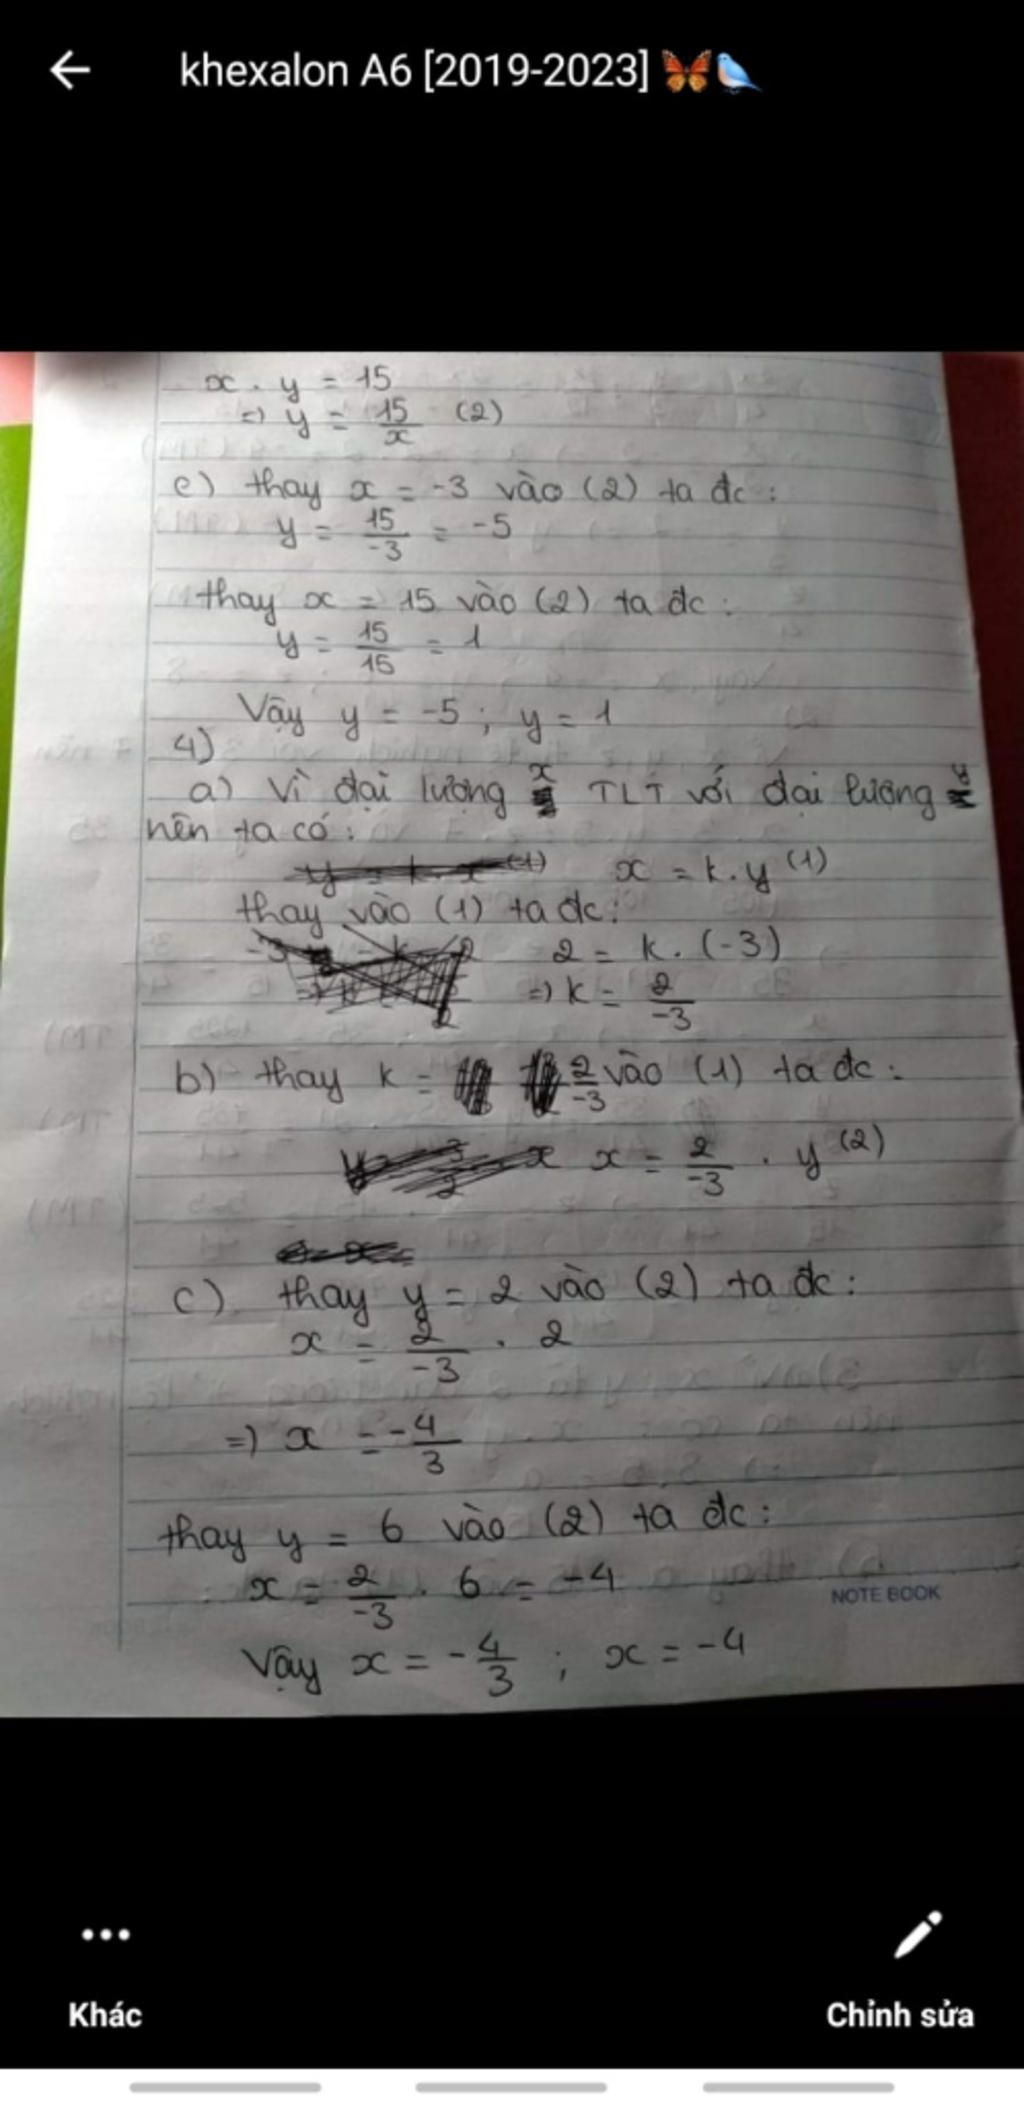 khexalon A6 [2019-2023] 🦋🐦
x . y = 15
=> y = 15/x (2)
c) thay x = -3 vào (2) ta đc :
y = 15/-3 = -5
thay x = 15 vào (2) ta đc :
y = 15/15 = 1
Vậy y = -5 ; y = 1
4)
a) Vì đại lượng x TLT với đại lượng y
nên ta có :
x = k . y (1)
thay vào (1) ta đc :
2 = k . (-3)
=> k = 2/-3
b) thay k = 2/-3 vào (1) ta đc :
x = 2/-3 . y (2)
c) thay y = 2 vào (2) ta đc :
x = 2/-3 . 2
=> x = -4/3
thay y = 6 vào (2) ta đc :
x = 2/-3 . 6 = -4
NOTE BOOK
Vậy x = -4/3 ; x = -4
Khác
Chỉnh sửa